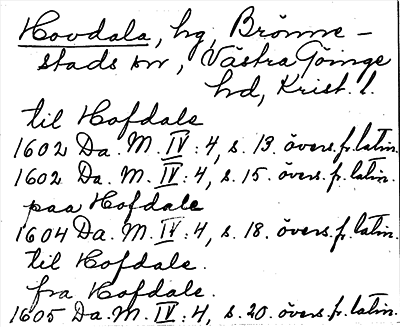 Hovdala, hg, Brönne-
stads sn, Västra Göinge
hd, Krist. l.
til Hofdale
1602 Da. M. IV: 4, s. 13. övers. fr. latin.
1602 Da. M. IV: 4, s. 15. övers. fr. latin.
paa Hofdale
1604 Da. M. IV: 4, s. 18. övers. fr. latin.
til Hofdale.
fra Hofdale.
1605 Da. M. IV: 4, s. 20. övers. fr. latin.